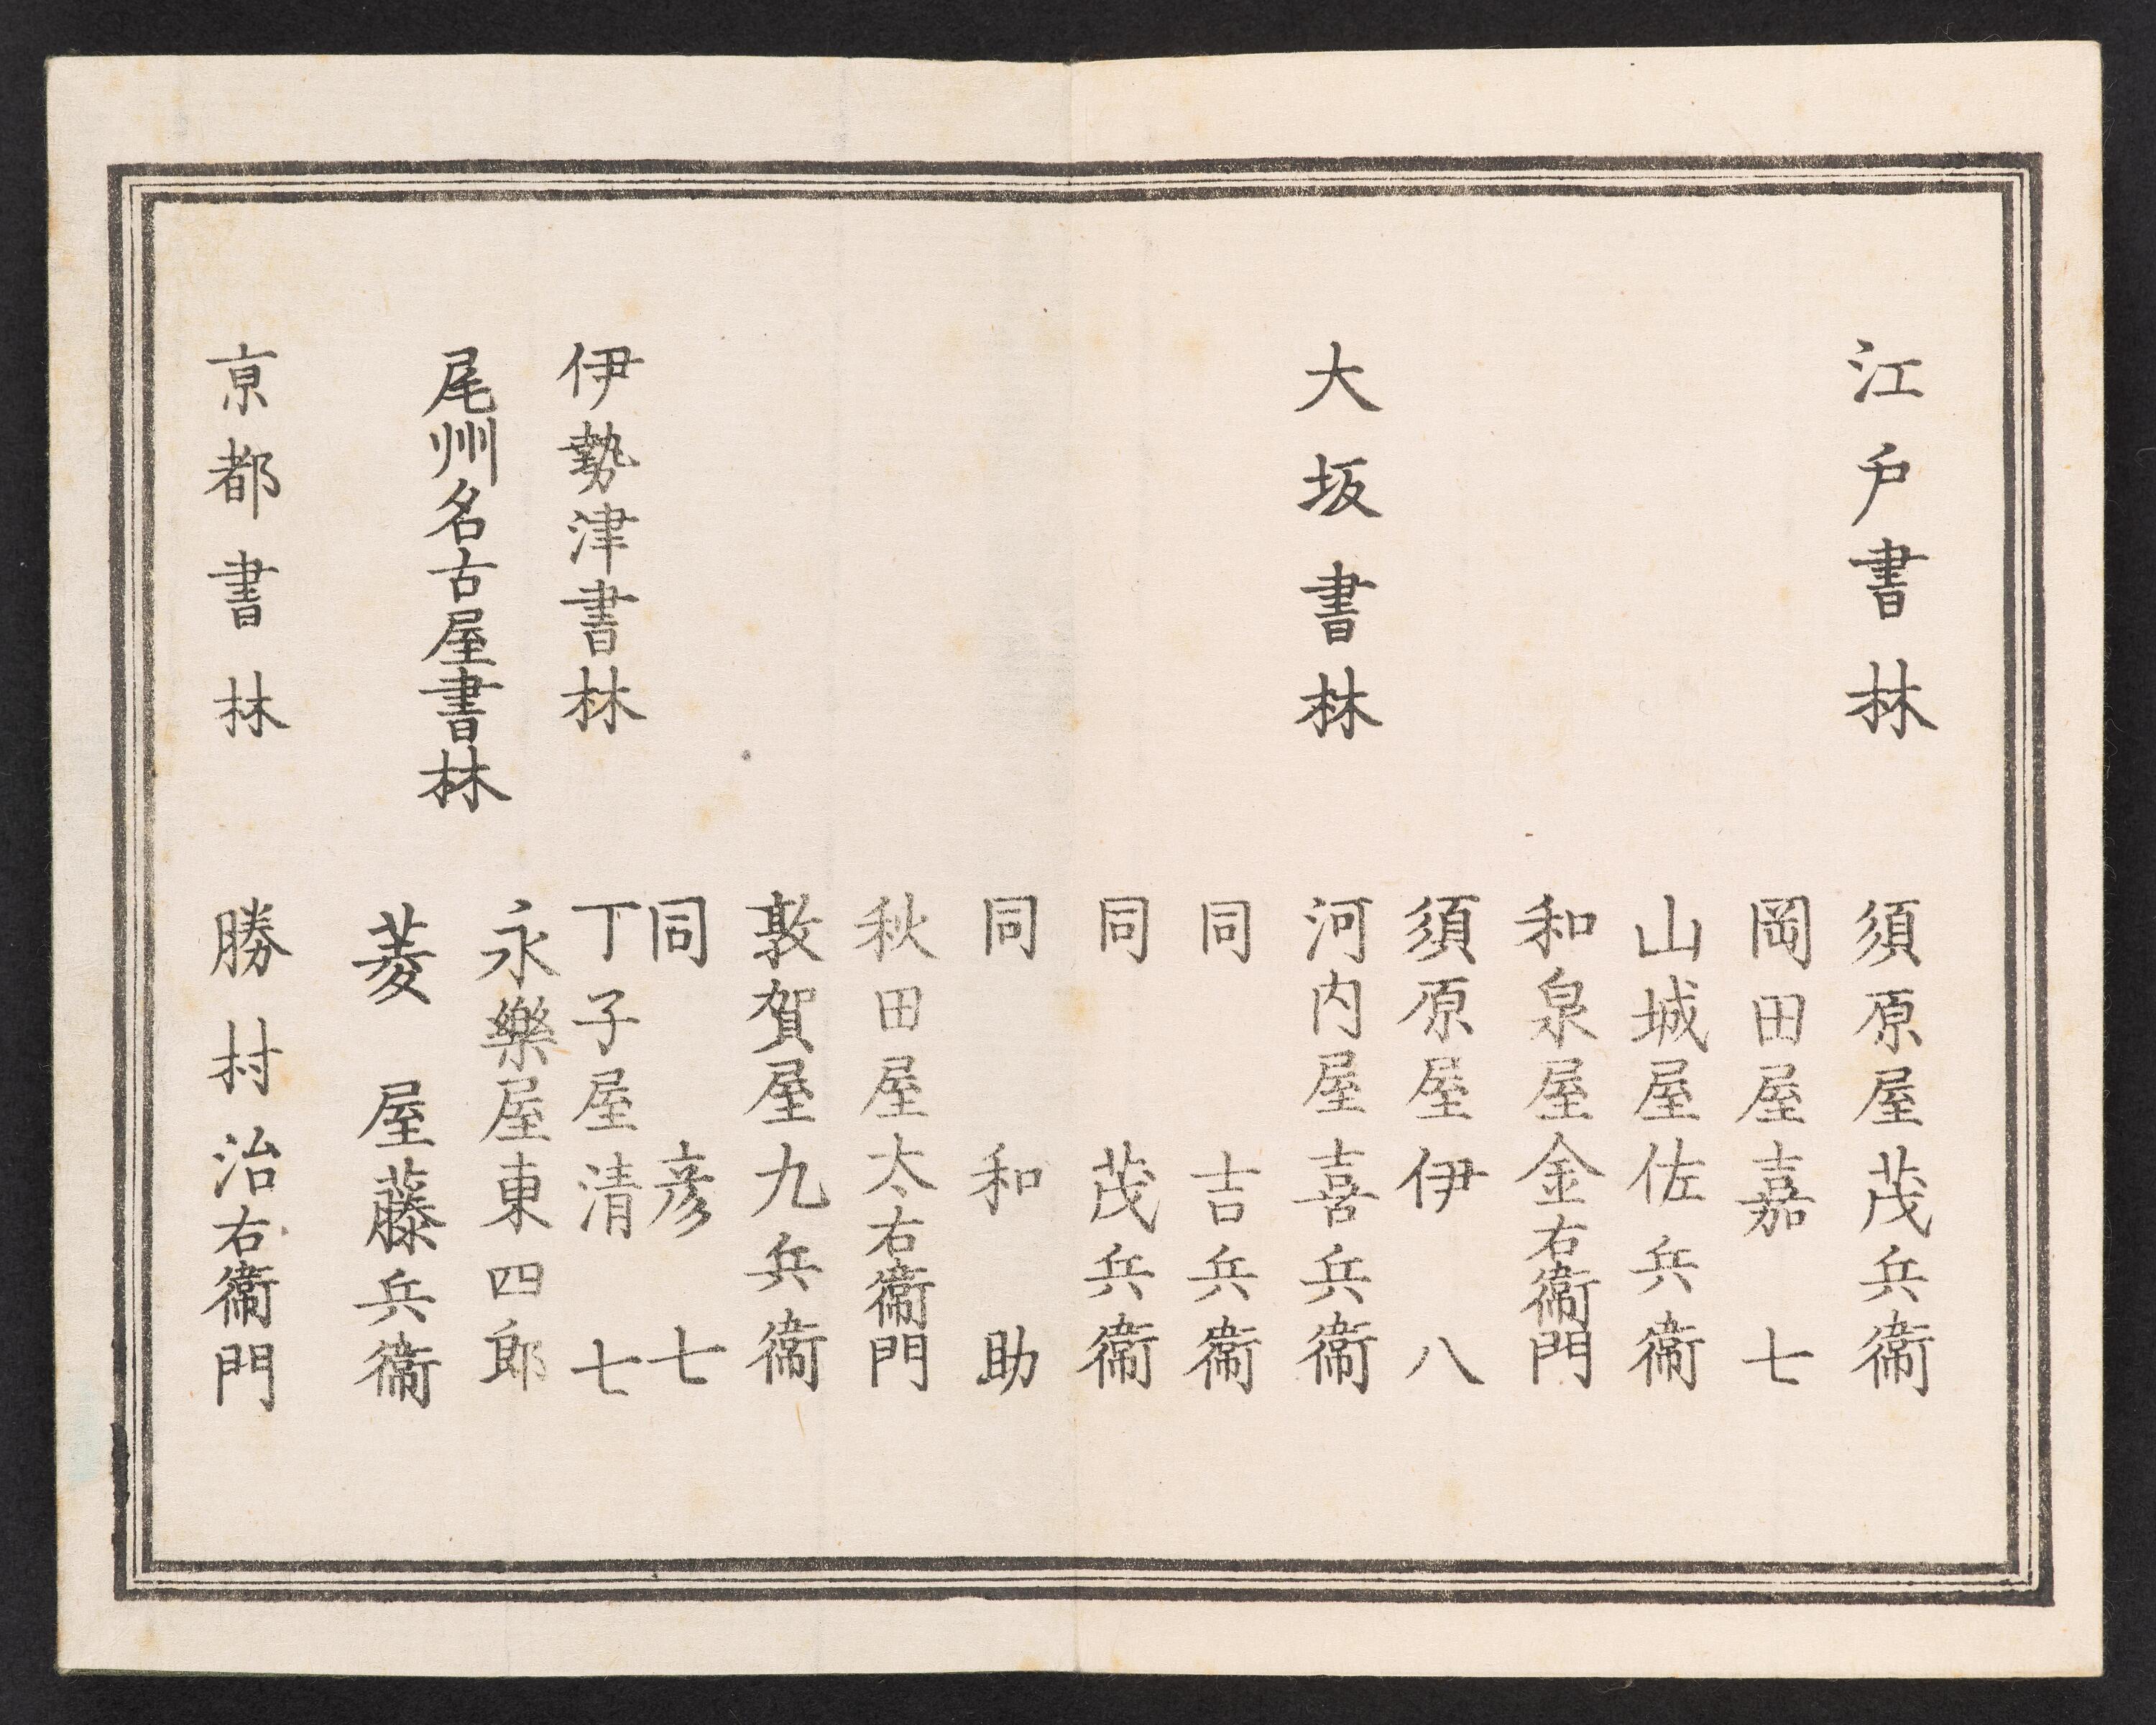 江戸書林　須原屋茂兵衞
岡田屋嘉七
山城屋佐兵衞
和泉屋金右衞門
須原屋伊八
大坂書林　河内屋喜兵衞
同　吉兵衞
同　茂兵衞
同　和助
秋田屋太右衞門
敦賀屋九兵衞
同　彦七
伊勢津書林　丁子屋清七
永樂屋東四郎
尾州名古屋書林
菱屋藤兵衞
京都書林　勝村治右衞門